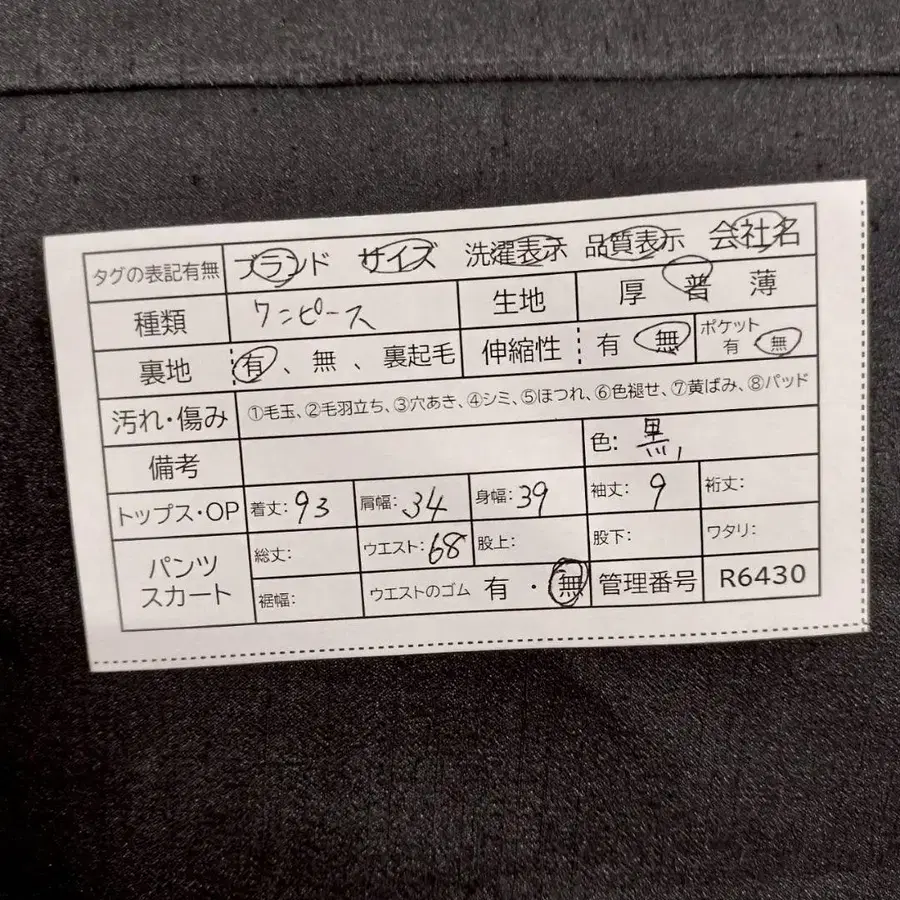 タグの表記有無 ブランド サイズ 洗濯表示 品質表示 会社名
種類 ワンピース 生地 厚 普 薄
裏地 有、無、裏起毛 伸縮性 有 無 ポケット 有 無
汚れ・傷み ①毛玉、②毛羽立ち、③穴あき、④シミ、⑤ほつれ、⑥色褪せ、⑦黄ばみ、⑧パッド
備考 色: 黒
トップス・OP 着丈: 93 肩幅: 34 身幅: 39 袖丈: 9 裄丈:
パンツ スカート 総丈: ウエスト: 68 股上: 股下: ワタリ:
裾幅: ウエストのゴム 有・無 管理番号 R6430